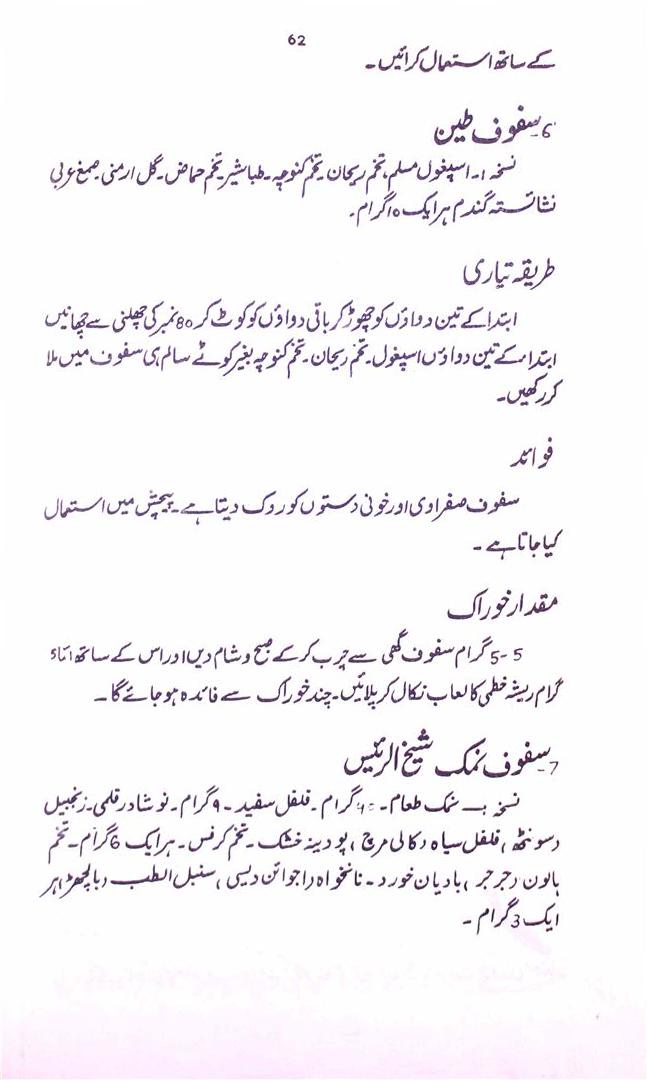 62
کے ساتھ استعمال کرائیں۔
6۔ سفوف طین
نسخہ ا۔ اسپغول مسلم، تخم ریحان۔ تخم کنوچہ۔ طباشیر تخم حماض۔ گل ارمنی۔ صمغ عربی
نشاستہ گندم ہر ایک ۱۰ گرام۔
طریقہ تیاری
ابتدا کے تین دواؤں کو چھوڑ کر باقی دواؤں کو کوٹ کر 80 نمبر کی چھلنی سے چھانیں
ابتدا کے تین دواؤں اسپغول۔ تخم ریحان۔ تخم کنوچہ بغیر کوٹے سالم ہی سفوف میں ملا
کر رکھیں۔
فوائد
سفوف صفراوی اور خونی دستوں کو روک دیتا ہے۔ پیچش میں استعمال
کیا جاتا ہے۔
مقدار خوراک
5-5 گرام سفوف گھی سے چرب کر کے صبح و شام دیں اور اس کے ساتھ
گرام ریشہ خطمی کا لعاب نکال کر پلائیں۔ چند خوراک سے فائدہ ہو جائے گا۔
7۔ سفوف نمک شیخ الرئیس
نسخہ :۔ نمک طعام۔ گرام۔ فلفل سفید۔ ۹ گرام۔ نوشادر قلمی۔ زنجبیل
(سونٹھ) فلفل سیاہ (کالی مرچ) پودینہ خشک۔ تخم کرفس۔ ہر ایک 6 گرام۔ تخم
ہالون (جرجر) بادیان خورد۔ نانخواہ (اجوائن دیسی) سنبل الطیب (بالچھڑ) ہر
ایک 3 گرام۔